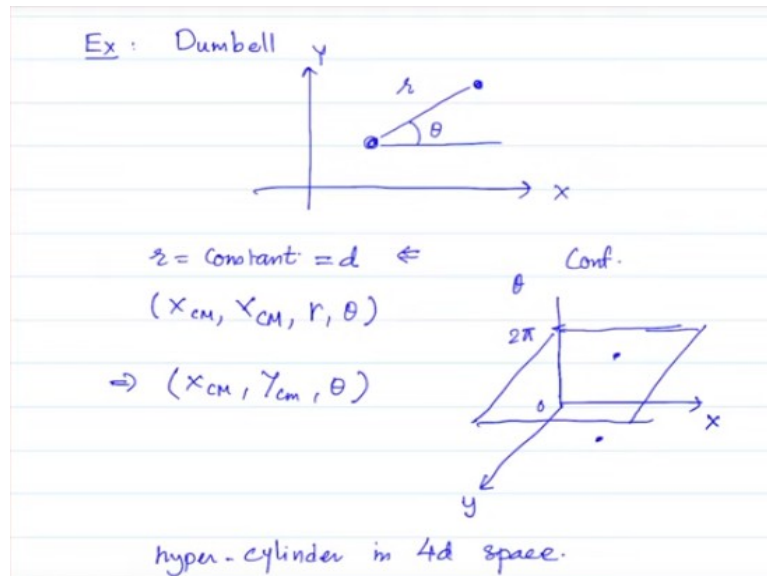 Ex : Dumbell
Y
r
θ
X
r = constant = d ⇐
Conf.
(X_CM, Y_CM, r, θ)
θ
2π
⇒ (X_CM, Y_cm, θ)
0
X
y
hyper-cylinder in 4d space.